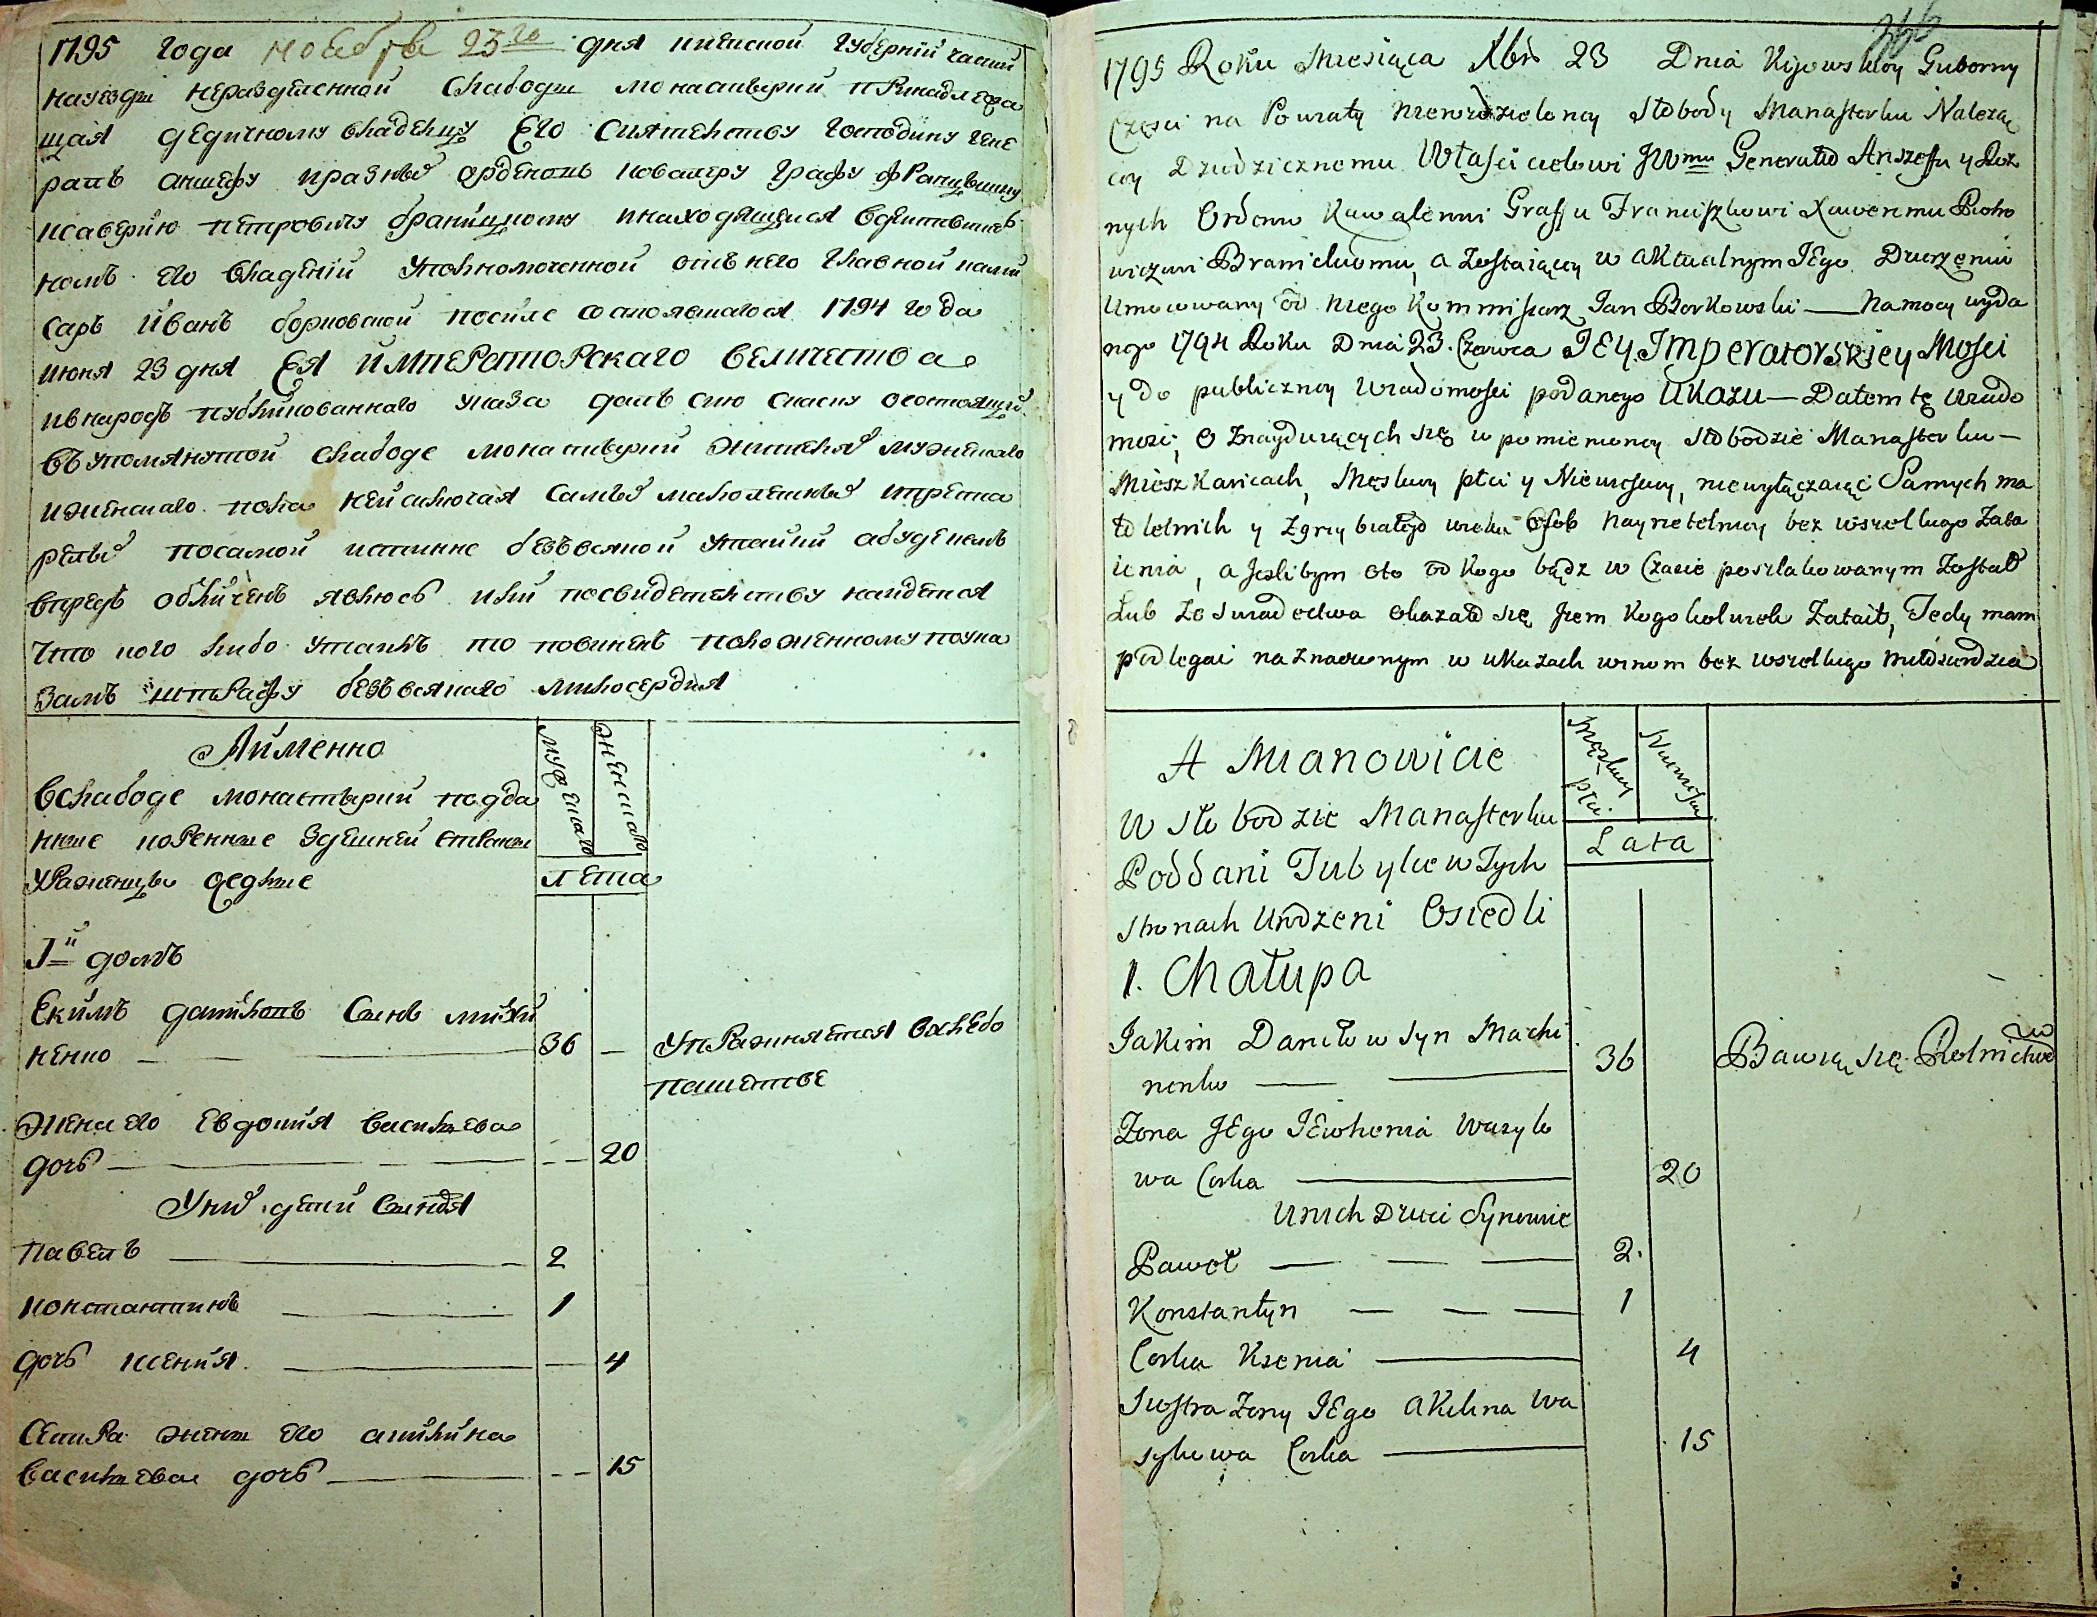 1795 года ноебря 23го дня киевской губернии части
науезды неразделенной слабоды монастырки принадлежа
щая дедичному владельцу Его сиятельству господину гене
ралъ аншефу иразныхъ орденовъ ковалеру графу францишку
ксаверию петровичу браницкому инаходящемся вдействитель
номъ его владении уполномоченной отъ него главной коми
саръ иванъ борковской посиле состоявшагося 1794 года
июня 23 дня Ея императорскаго величества
ивнародъ публикованнаго указа далъ сию скаску осостоящих
въупомянутой слабоде монастырки жителяхъ мужескаго
иженскаго пола неисключая самыхъ малолетныхъ ипреста
релыхъ посамой истинне безъвсякой утайки абудекемъ
впредь обличенъ явлюсь или посвидетельству найдется
что кого либо утаилъ то повиненъ положенному поука
замъ штрафу безъвсякаго милосердия
Аименно
вслабоде монастырки подда
нные коренные здешней страны
уроженцы седлые
мужескаго
женскаго
лета
1й домъ
Екимъ даниловъ сынъ махи
ненко 36 упражняется вхлебо
пашестве
жена его евдокия васильева
дочь 20
униxъ дети сыновя
павелъ 2
константинъ 1
дочь ксения 4
сестра жены его акилина
васильева дочь 15
366
1795 Roku Miesiąca Xbra 23 Dnia Kijowskiey Guberny
Częsci na Powiaty nierozdzieloney Słobody Manasterku Nalezą
cey Dziedzicznemu Własci cielowi JWmu Generało Anszeffu y Roz
nych Orderow Kawalerowi Graffu Franciszkowi Xaweremu Piotro
wiczowi Branickiemu, a Zostaiący w aktualnym JEgo Dzierzeniu
Umocowany od niego Kommissarz Jan Borkowski — Na mocy wyda
nego 1794 Roku Dnia 23. Czerwca JEY Imperatorskiey Mosci
y do publiczney wiadomosci podanego Ukazu — Dałem tę wiado
mosc, o znayduiących się w pomienioney słobodzie Manasterku —
Mieszkancach, Męskiey płci y Niewiesciey, niewyłączaiąc Samych ma
łoletnich y zgrzybiałego wieku Osob nayrzetelniey bez wszelkiego Zata
ienia, a Jeslibym oto od kogo bądz w Czasie poszlakowanym Został
Lub Ze swiadectwa okazało się Jzem kogo kolwiek Zataił, Tedy mam
podlegac naznaczonym w ukazach winom bez wszelkiego miłosierdzia
A Mianowicie
W słobodzie Manasterku
Poddani Tubylce w Tych
stronach Urodzeni Osiedli
Męskiey płci
Niewiesciey
Lata
1. Chałupa
Jakim Daniłow syn Machi
nenko 36 Bawią się Rolnictwem
Zona JEgo JEwhenia Wasylo
wa Corka 20
U nich Dzieci Synowie
Paweł 2.
Konstantyn 1
Corka Ksenia 4
Siostra Zony JEgo Akilina Wa
sylowa Corka 15